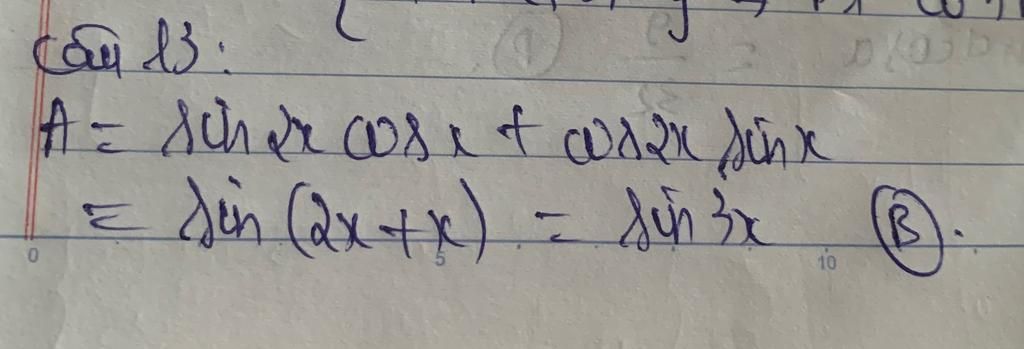 Câu 13:
A = sin 2x cos x + cos 2x sin x
= sin (2x + x) = sin 3x (B).
0 5 10